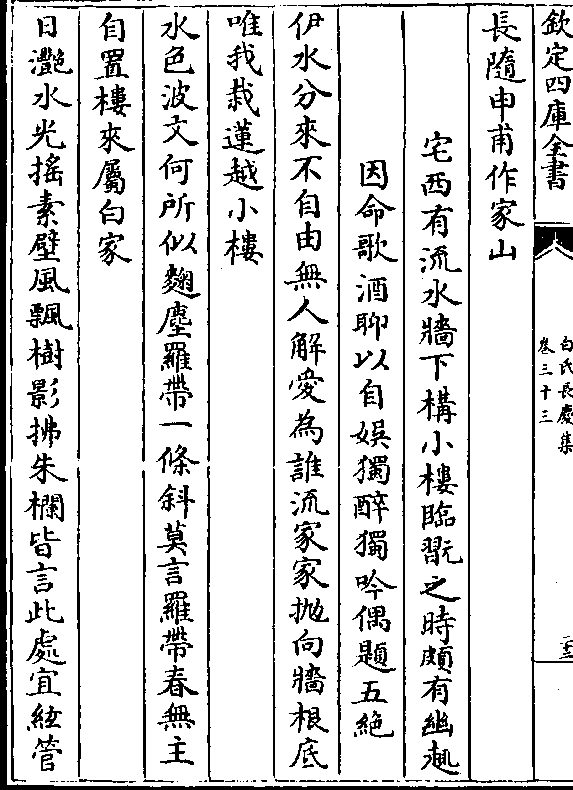 欽定四庫全書
白氏長慶集
卷三十三
長隨申甫作家山
宅西有流水牆下構小樓臨翫之時頗有幽趣
因命歌酒聊以自娛獨醉獨吟偶題五絶
伊水分來不自由無人解愛為誰流家家抛向牆根底
唯我栽蓮越小樓
水色波文何所似麴塵羅帶一條斜莫言羅帶春無主
自置樓來屬白家
日灧水光搖素壁風飄樹影拂朱欄皆言此處宜絃管